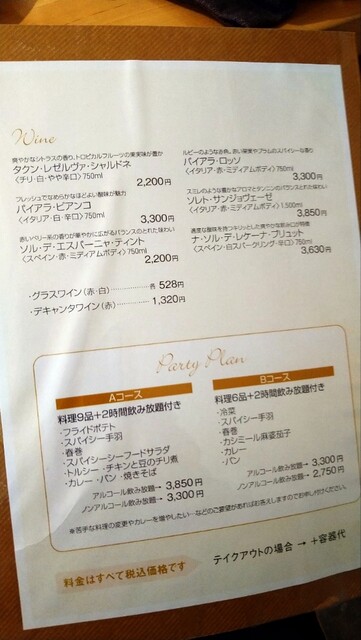 Wine
爽やかなシトラスの香り、トロピカルフルーツの果実味が豊か
タクン・レゼルヴァ・シャルドネ
〈チリ・白・やや辛口〉750ml
2,200円
フレッシュでなめらかなほどよい酸味が魅力
パイアラ・ビアンコ
〈イタリア・白・辛口〉750ml
3,300円
赤いベリー系の香りが華やかに広がるバランスのとれた味わい
ソル・デ・エスパーニャ・ティント
〈スペイン・赤・ミディアムボディ〉750ml
2,200円
・グラスワイン(赤・白)………… 各 528円
・デキャンタワイン(赤)………… 1,320円
ルビーのような赤色。赤い果実やプラムのスパイシーな香り
パイアラ・ロッソ
〈イタリア・赤・ミディアムボディ〉750ml
3,300円
スミレのような豊かなアロマとタンニンのバランスとれた味わい
ソレト・サンジョヴェーゼ
〈イタリア・赤・ミディアムボディ〉1,500ml
3,850円
ナ・ソル・デ・レケーナ・ブリュット
〈スペイン・白スパークリング・辛口〉750ml
3,630円
Party Plan
Aコース
料理9品+2時間飲み放題付き
・フライドポテト
・スパイシー手羽
・春巻
・スパイシーシーフードサラダ
・トルシー・チキンと豆のチリ煮
・カレー・パン・焼きそば
アルコール飲み放題→ 3,850円
ノンアルコール飲み放題→ 3,300円
Bコース
料理6品+2時間飲み放題付き
・冷菜
・スパイシー手羽
・春巻
・カシミール麻婆茄子
・カレー
・パン
アルコール飲み放題→ 3,300円
ノンアルコール飲み放題→ 2,750円
※苦手な料理の変更やカレーを増やしたい…などのご要望があればお答えしますのでお申し付けください。
料金はすべて税込価格です
テイクアウトの場合 → +容器代